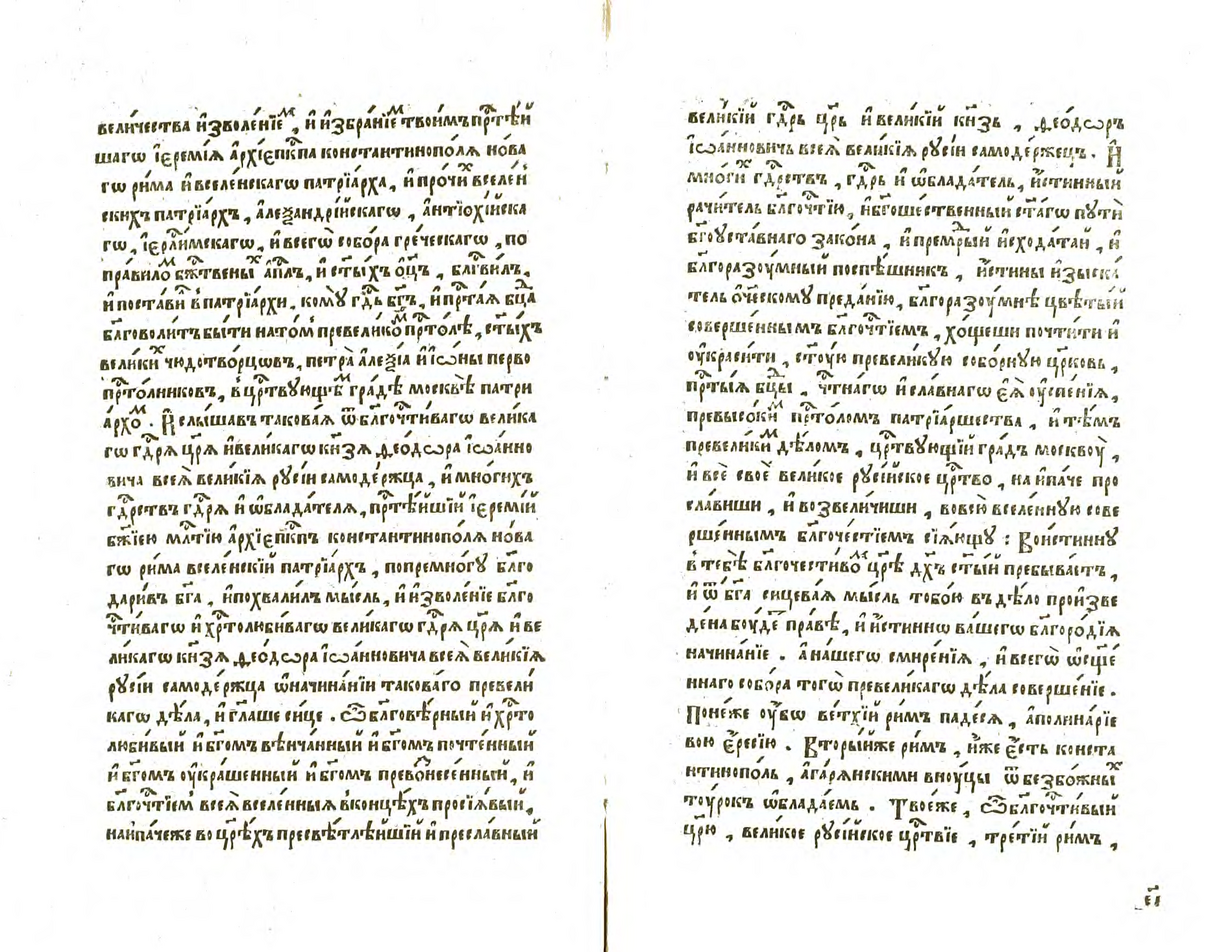 величества и҆зволе́нїеⷨ, и҆ и҆збра́нїеⷨ твои́мъ прⷭ҇тѣ́й
шагѡ і҆еремі́ѧ а҆рхїепⷭ҇кпа константинопо́лѧ но́ва
гѡ ри́ма и҆ вселе́нскагѡ патрїа́рха, и҆ про́чиⷯ вселе́н
скихъ патрїа́рхъ, а҆леѯандрі́йскагѡ, а҆нтїохі́йска
гѡ, і҆ерⷭ҇ли́мскагѡ, и҆ всегѡ̀ собо́ра гре́ческагѡ, по
пра́вилоⷨ бж҃твены́ⷯ а҆пⷭ҇лъ, и҆ ст҃ы́хъ ѻ҆ц҃ъ, блг҃ви́лъ,
и҆ поста́ви в̾ патрїа́рхи, кому̀ гдⷭ҇ь бг҃ъ, и҆ прⷭ҇таѧ бцⷣа
благоволи́тъ бы́ти на то́м̾ превели́коⷨ прⷭ҇то́лѣ, ст҃ы́хъ
вели́киⷯ чюдотво́рцовъ, петра̀ а҆леѯі́а и҆ і҆ѡ́ны перво
прⷭ҇то́лниковъ, в̾ црⷭ҇твующеⷨ гра́дѣ москвѣ̀ патри
а́рхоⷨ. И҆ слы́шавъ такова́ѧ ѿ блг҃очⷭ҇ти́вагѡ вели́ка
гѡ гдⷭ҇рѧ црⷭ҇ѧ и҆ вели́кагѡ кн҃зѧ ѳео́дѡра і҆ѡа́нно
вича всеѧ̀ вели́кїѧ рꙋсі́и самоде́ржца, и҆ мно́гихъ
гдⷭ҇рствъ гдⷭ҇рѧ и҆ ѡ҆блада́телѧ, прⷭ҇тѣ́йшїй і҆еремі́й
бж҃їею млⷭ҇тїю а҆рхїепⷭ҇кпъ константинопо́лѧ но́ва
гѡ ри́ма вселе́нскїй патрїа́рхъ, попремно́гꙋ бл҃го
дари́въ бг҃а, и҆ похвали́лъ мы́сль, и҆ и҆зволе́нїе бл҃го
чⷭ҇ти́вагѡ и҆ хрⷭ҇толюби́вагѡ вели́кагѡ гдⷭ҇рѧ црⷭ҇ѧ и҆ ве
ли́кагѡ кн҃зѧ ѳео́дѡра і҆ѡа́нновича всеѧ̀ вели́кїѧ
рꙋсі́и самоде́ржца ѡ҆ начина́нїи такова́го превели́
кагѡ дѣ́ла, и҆ гл҃аше си́це. Ѽ благовѣ́рный и҆ хрⷭ҇то
люби́вый и҆ бг҃омъ вѣнча́нный и҆ бг҃омъ почте́нный
и҆ бг҃омъ ᲂу҆кра́шенный и҆ бг҃омъ превѻзнесе́нный, и҆
блг҃очⷭ҇тїем̾ всеѧ̀ вселе́нныѧ в̾ конце́хъ просїѧ́вый,
наипа́чеже во црⷭ҇ѣ́хъ пресвѣтлѣ́йшїй и҆ пресла́вный
вели́кїй гдⷭ҇рь црⷭ҇ь и҆ вели́кїй кн҃зь, ѳео́дѡръ
і҆ѡа́нновичь всеѧ̀ вели́кїѧ рꙋсі́и самоде́ржецъ. И҆
мно́гиⷯ гдⷭ҇рствъ, гдⷭ҇рь и҆ ѡ҆блада́тель, и҆́стинный
рачи́тель блг҃очⷭ҇тїю, и҆ бг҃оше́ственный ст҃а́гѡ пꙋтѝ
бг҃оꙋста́внаго зако́на, и҆ премⷣрый и҆схода́тай, и҆
блг҃оразꙋ́мный поспѣ́шникъ, и҆́стины и҆зыска́
тель ѻ҆ч҃ескому преда́нїю, блг҃оразꙋ́мнѣ цвѣ́тый
соверше́ннымъ блг҃очⷭ҇тїемъ, хо́щеши почти́ти и҆
ᲂу҆краси́ти, ст҃ꙋ́ю превели́кꙋю собо́рнꙋю црⷭ҇ковь,
прⷭ҇тыѧ бцⷣы, чⷭ҇тна́гѡ и҆ сла́внагѡ є҆ѧ̀ ᲂу҆спе́нїѧ,
превысо́киⷨ прⷭ҇то́ломъ патрїа́ршества, и҆ тѣ́мъ
превели́киⷨ дѣ́ломъ, црⷭ҇твующїй гра́дъ москвꙋ̀,
и҆ всѐ своѐ вели́кое рꙋсі́йское црⷭ҇тво, наипа́че про
сла́виши, и҆ возвели́чиши, во всю̀ вселе́ннꙋю сове
рше́ннымъ благоче́стїемъ сїѧ́ющꙋ: Вои́стиннꙋ
в̾ тебѣ̀ благочести́воⷨ црⷭ҇ѣ дх҃ъ ст҃ы́й пребыва́етъ,
и҆ ѿ бг҃а сицева́ѧ мы́сль тобо́ю въ дѣ́ло произве
дена̀ бꙋ́деⷮ пра́вѣ, и҆ и҆́стиннѡ ва́шегѡ блг҃оро́дїѧ
начина́нїе. а҆ на́шегѡ смире́нїѧ, и҆ всегѡ̀ ѡ҆сщ҃е́
ннаго собо́ра тогѡ̀ превели́кагѡ дѣ́ла соверше́нїе.
Поне́же ᲂу҆́бѡ ве́тхїй ри́мъ паде́сѧ, а҆полина́рїе
вою є҆́ресїю. Вторы́йже ри́мъ, и҆́же є҆́сть конста
нтинопо́ль, а҆га́рѧнскими внꙋ́цы ѿ безбо́жныⷯ
тꙋ́рокъ ѡ҆блада́емь. Твоеже, ѽ блг҃очⷭ҇ти́вый
црⷭ҇ю, вели́кое рꙋсі́йское црⷭ҇твїе, тре́тїй ри́мъ,
є҃і